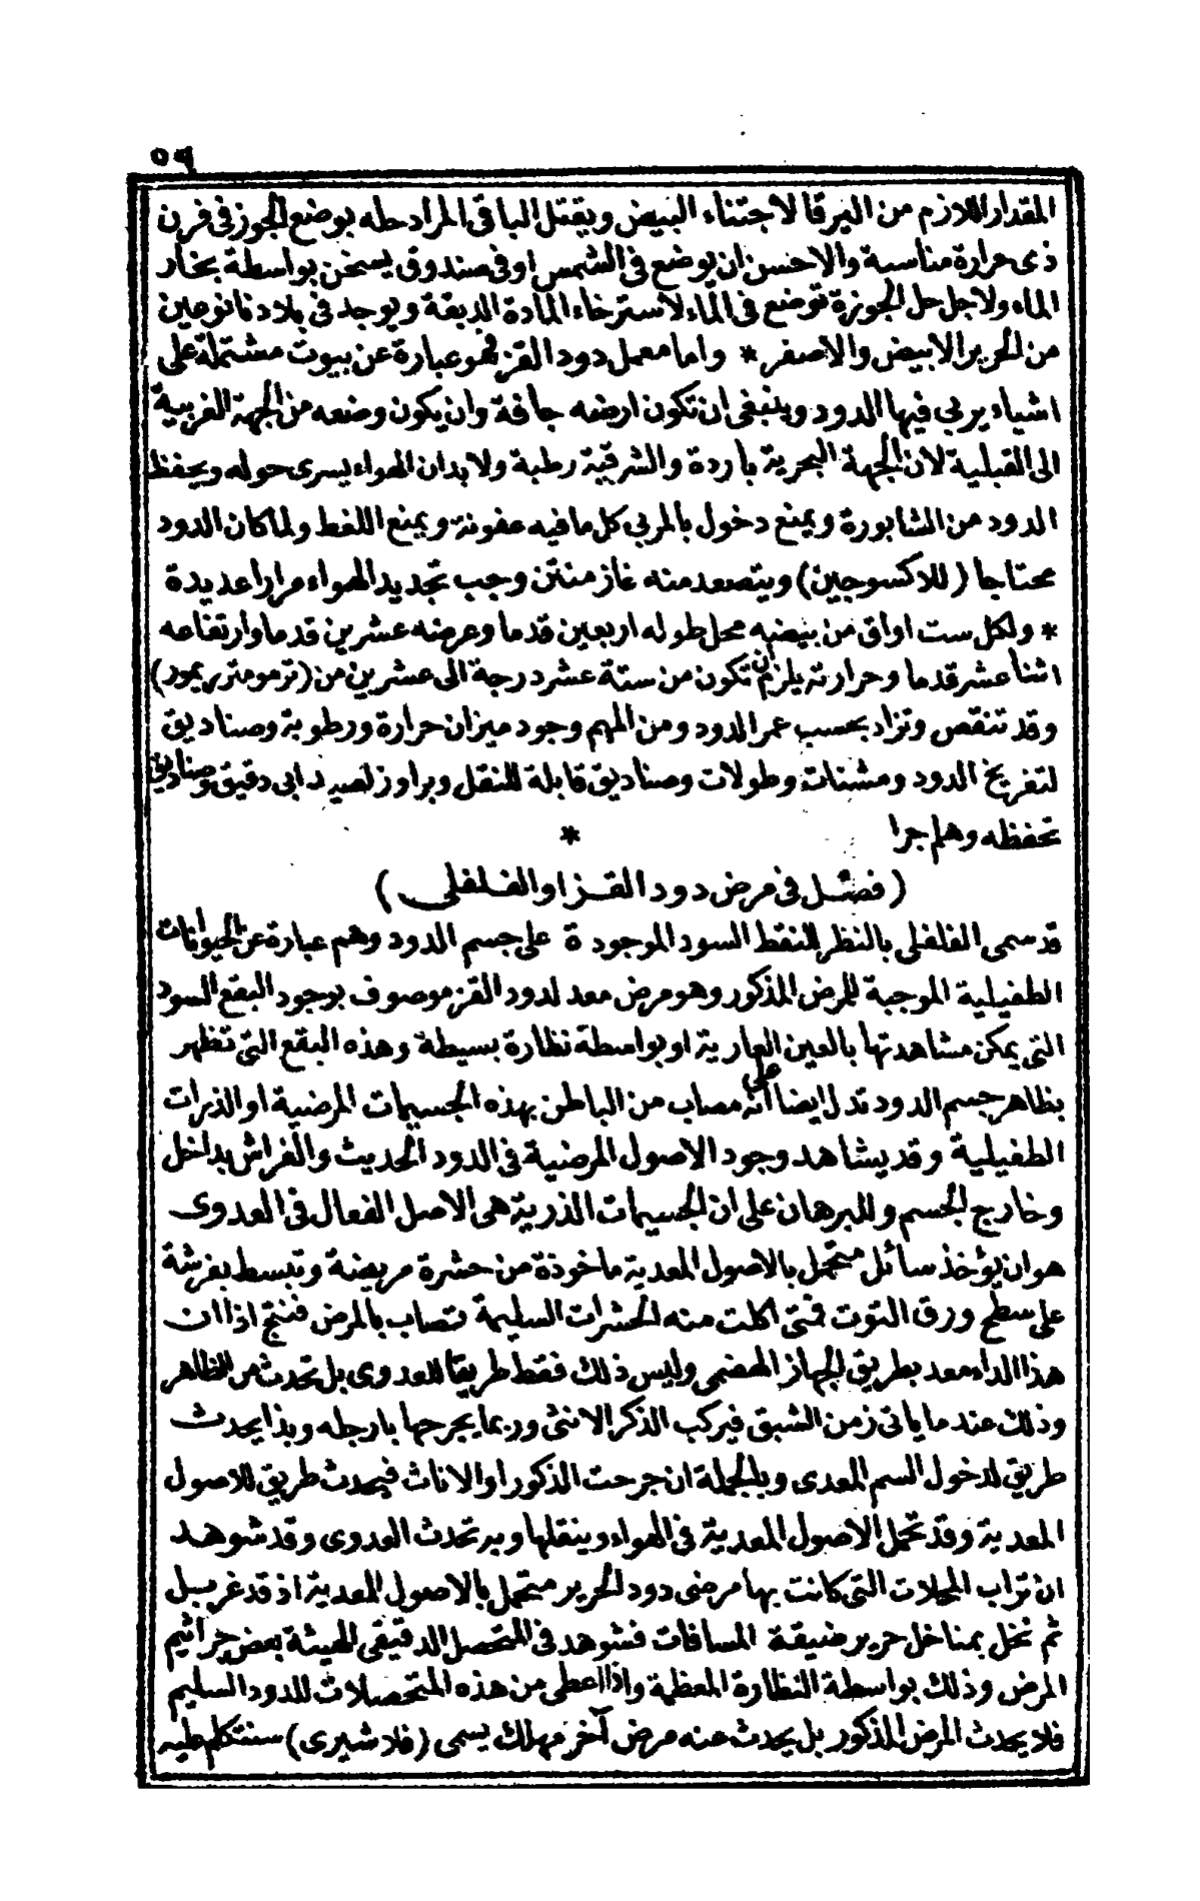 ٥٩
المقدار اللازم من اليرقا لاجتناء البيض ويقتل الباقى المراد حله بوضع الجوز فى فرن
ذى حرارة مناسبة والاحسن ان يوضع فى الشمس او فى صندوق يسخن بواسطة بخار
الماء ولاجل حل الجوزة توضع فى الماء لاسترخاء المادة الدبقة ويوجد فى بلادنا نوعين
من الحرير الابيض والاصفر * واما معمل دود القز فهو عبارة عن بيوت مشتملة على
اشياء يربى فيها الدود وينبغى ان تكون ارضه جافة وان يكون وضعه من الجهة الغربية
الى القبلية لان الجهة البحرية باردة والشرقية رطبة ولابد ان الهواء يسرى حوله ويحفظ
الدود من الشابورة ويمنع دخول بالمربى كل ما فيه عفونة ويمنع اللغط ولما كان الدود
محتاجا (للاكسوجين) ويتصعد منه غاز منتن وجب تجديد الهواء مرارا عديدة
* ولكل ست اواق من بيضه محل طوله اربعين قدما وعرضه عشرين قدما وارتفاعه
اثنا عشر قدما وحرارته يلزم ان تكون من ستة عشر درجة الى عشرين من (ترمومتر ريمور)
وقد تنقص وتزاد بحسب عمر الدود ومن المهم وجود ميزان حرارة ورطوبة وصناديق
لتفريخ الدود ومشنات وطولات وصناديق قابلة للنقل وبراوز لصيد ابى دقيق وصناديق
تحفظه وهلم جرا *
(فصل فى مرض دود القز او الفلفلى)
قد سمى الفلفلى بالنظر للنقط السود الموجودة على جسم الدود وهم عبارة عن الحيوانات
الطفيلية الموجبة للمرض المذكور وهو مرض معد لدود القز موصوف بوجود البقع السود
التى يمكن مشاهدتها بالعين العارية او بواسطة نظارة بسيطة وهذه البقع التى تظهر
بظاهر جسم الدود تدل ايضا على انه مصاب من الباطن بهذه الجسيمات المرضية او الذرات
الطفيلية وقد يشاهد وجود الاصول المرضية فى الدود الحديث والفراش بداخل
وخارج الجسم وللبرهان على ان الجسيمات الذرية هى الاصل الفعال فى العدوى
هو ان يؤخذ سائل متحمل بالاصول المعدية ماخوذة من حشرة مريضة وتبسط بفرشة
على سطح ورق التوت فمتى اكلت منه الحشرات السليمة تصاب بالمرض فنتج اذا ان
هذا الداء معد بطريق الجهاز الهضمى وليس ذلك فقط طريقا للعدوى بل تحدث من الظاهر
وذلك عند ما ياتى زمن الشبق فيركب الذكر الانثى وربما يجرحها بارجله وبذا يحدث
طريق لدخول السم المعدى وبالجملة ان جرحت الذكور او الاناث فيحدث طريق للاصول
المعدية وقد تحمل الاصول المعدية فى الهواء وينقلها وبه تحدث العدوى وقد شوهد
ان تراب المحلات التى كانت بها مرضى دود الحرير متحمل بالاصول المعدية اذ قد غربل
ثم نخل بمناخل حرير ضيقة المسافات فشوهد فى المتحصل الدقيقى الهيئة بعض جراثيم
المرض وذلك بواسطة النظارة المعظمة واذا اعطى من هذه المتحصلات للدود السليم
فلا يحدث المرض المذكور بل يحدث عنه مرض آخر مهلك يسمى (فلاشيرى) سنتكلم عليه